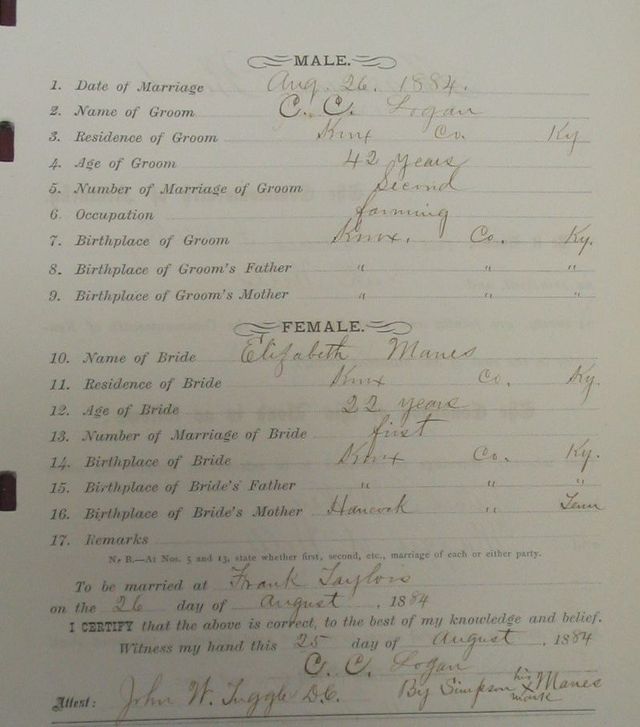 MALE.
1. Date of Marriage Aug. 26. 1884.
2. Name of Groom C. C. Logan
3. Residence of Groom Knox Co. Ky
4. Age of Groom 42 years
5. Number of Marriage of Groom Second
6. Occupation farming
7. Birthplace of Groom Knox. Co. Ky.
8. Birthplace of Groom's Father " " "
9. Birthplace of Groom's Mother " " "
FEMALE.
10. Name of Bride Elizabeth Manes
11. Residence of Bride Knox Co. Ky.
12. Age of Bride 22 years
13. Number of Marriage of Bride first
14. Birthplace of Bride Knox Co. Ky.
15. Birthplace of Bride's Father " " "
16. Birthplace of Bride's Mother Hancock " Tenn
17. Remarks
N. B.—At Nos. 5 and 13, state whether first, second, etc., marriage of each or either party.
To be married at Frank Taylors
on the 26 day of August, 1884
I CERTIFY that the above is correct, to the best of my knowledge and belief.
Witness my hand this 25 day of August, 1884
C. C. Logan
Attest: John W. Tuggle D.C. By Simpson his X mark Manes